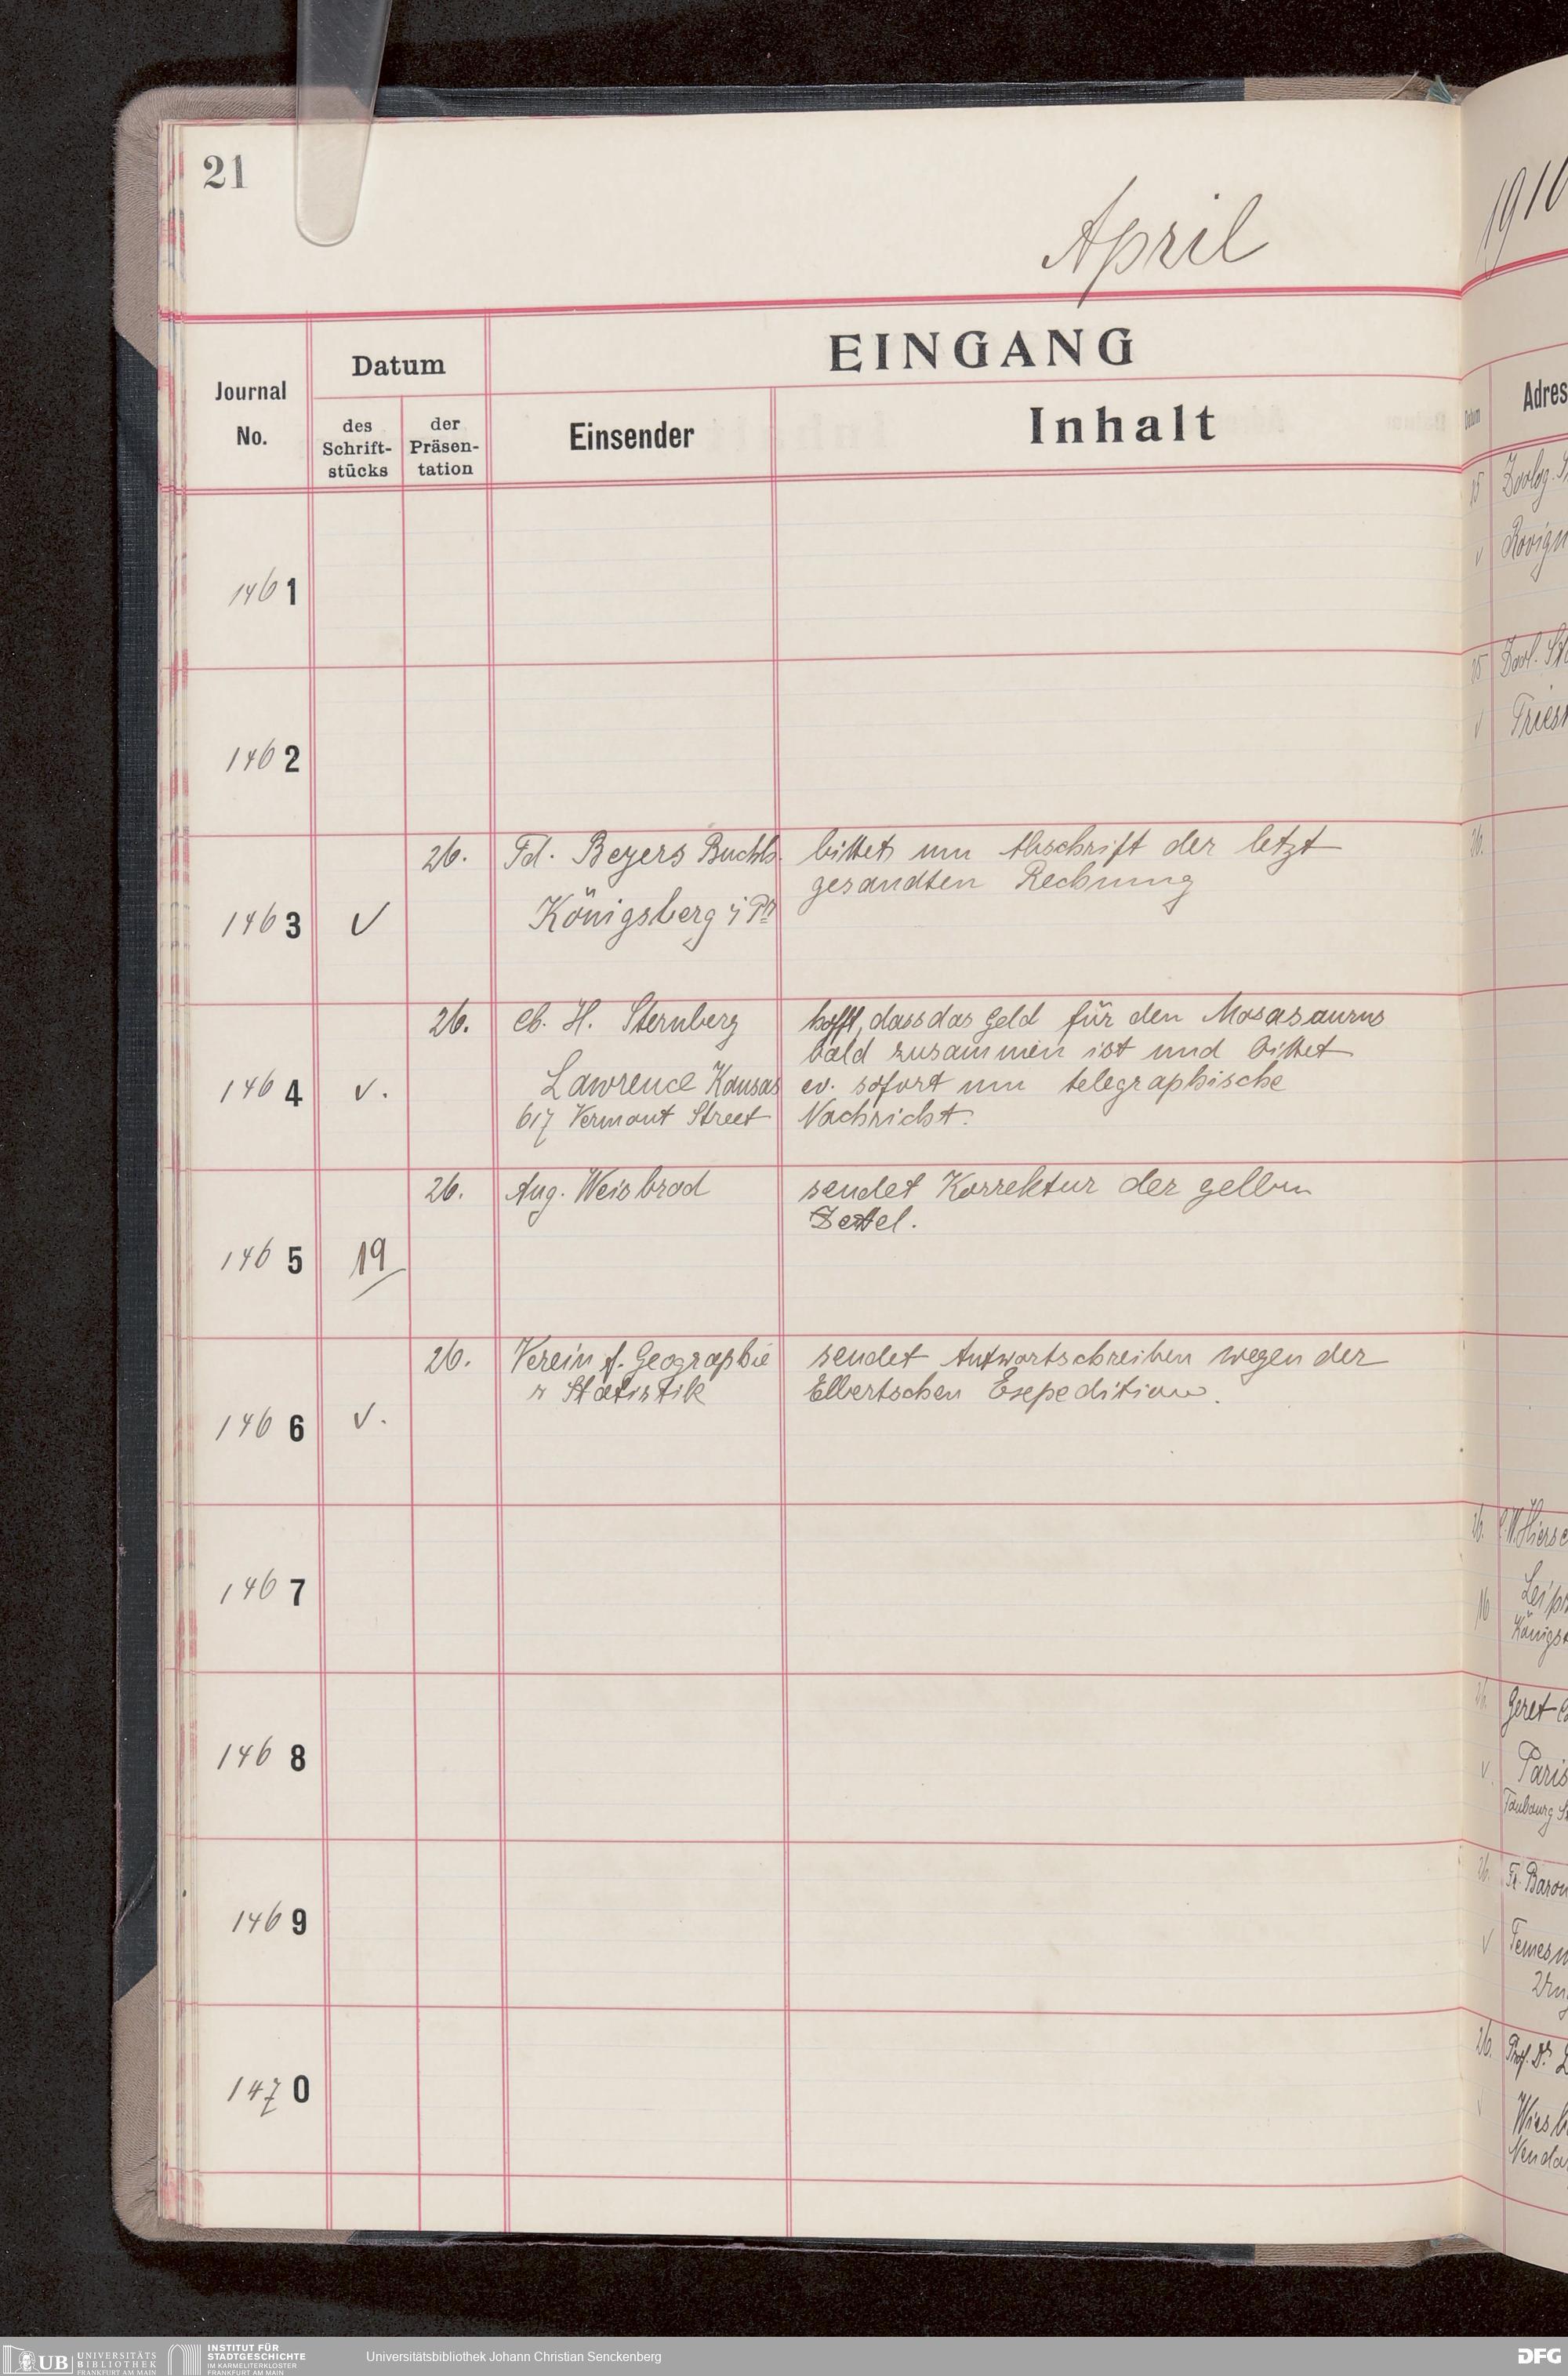 21
April
1910
EINGANG
Journal
No.
Datum
des
Schrift-
stücks
der
Präsen-
tation
Einsender
Inhalt
Datum
Adres
1461
15
Zoolog.
Rovign
1462
15
Zool. St
Triest
1463
✓
26.
Fd. Beyers Buchh.
Königsberg i Pr
bittet um Abschrift der letzt
gesandten Rechnung
26.
1464
v.
26.
Ch. H. Sternberg
Lawrence Kansas
617 Vermont Street
hofft, dass das Geld für den Mosasaurus
bald zusammen ist und bittet
ev. sofort um telegraphische
Nachricht.
1465
19
26.
Aug. Weisbrod
sendet Korrektur der gelben
Zettel.
1466
v.
26.
Verein f. Geographie
u Statistik
sendet Antwortschreiben wegen der
Elbertschen Expedition.
1467
26.
W. Hierse
Leip
Königs
16
1468
26.
Geret
Paris
Faubourg St
v.
1469
26.
Fr. Baron
Temes
Ung
v
1470
26.
Prof. Dr.
Wiesb
UB UNIVERSITÄTS
BIBLIOTHEK
FRANKFURT AM MAIN
INSTITUT FÜR
STADTGESCHICHTE
IM KARMELITERKLOSTER
FRANKFURT AM MAIN
Universitätsbibliothek Johann Christian Senckenberg
DFG